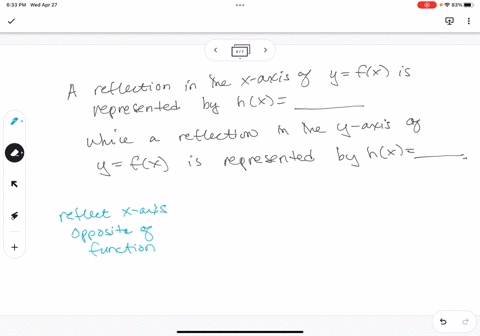 6:33 PM Wed Apr 27
83%
A reflection in the x-axis of y=f(x) is
represented by h(x)=
while a reflection in the y-axis of
y=f(x) is represented by h(x)=
reflect x-axis
opposite of
function